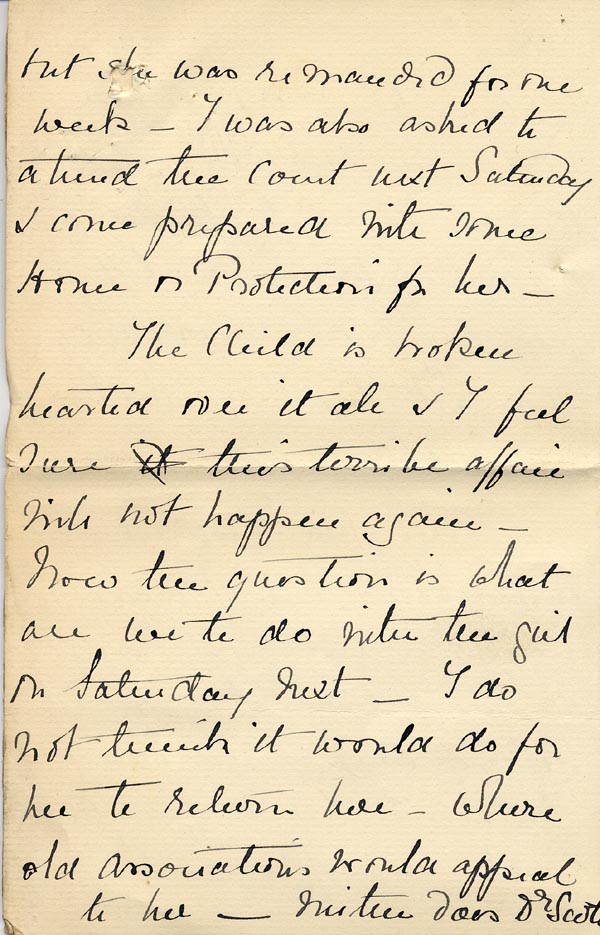 but she was remanded for one
week – I was also asked to
attend the Court next Saturday
& come prepared with some
Home or Protection for her –
The Child is broken
hearted over it all & I feel
sure it this terrible affair
will not happen again –
Now the question is what
are we to do with the girl
on Saturday next – I do
not think it would do for
her to return here – where
old associations would appeal
to her – neither does Dr Scott